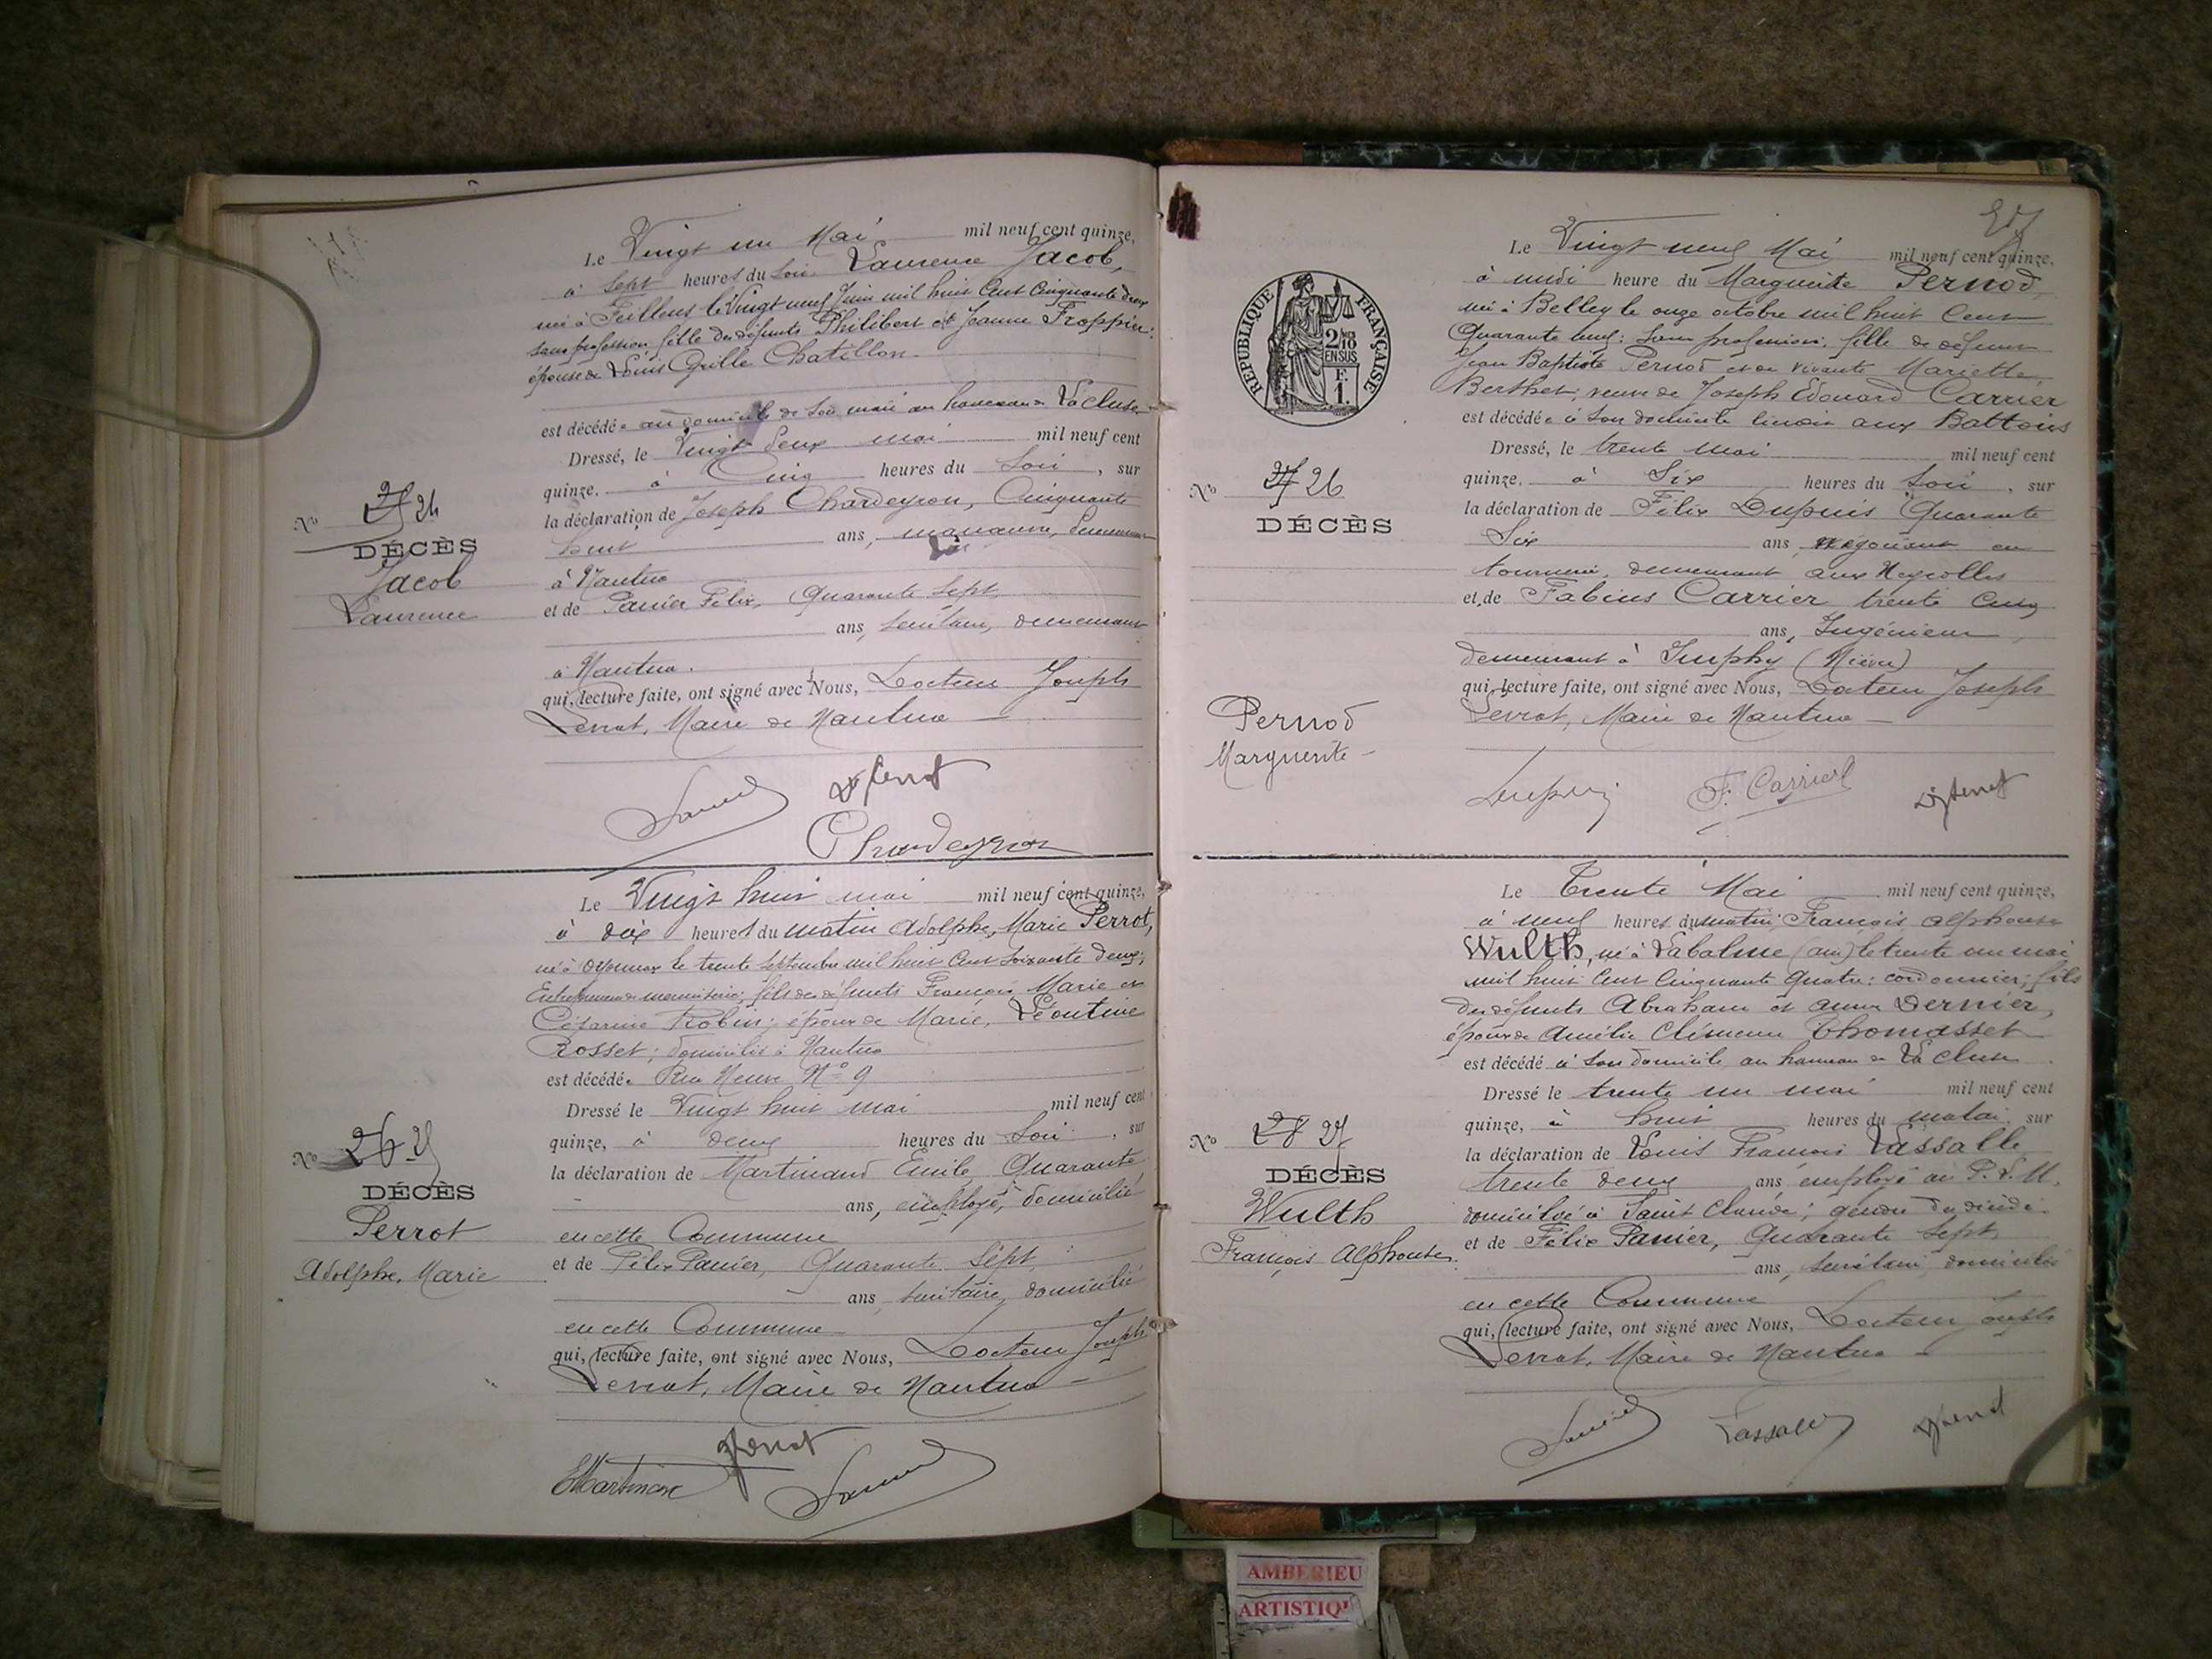 Le Vingt un Mai mil neuf cent quinze,
à Sept heures du soir Laurence Jacob,
née à Feillens le Vingt neuf Juin mil huit Cent Cinquante deux
sans profession fille de défunts Philibert et Jeanne Froppier:
épouse de Louis Grille Chatillon
est décédée au domicile de son mari au hameau de La cluse
Dressé, le Vingt deux mai mil neuf cent
quinze, à Cinq heures du Soir, sur
la déclaration de Joseph Chardeyron, Cinquante
huit ans, manœuvre, demeurant
à Nantua
et de Panier Félix, Quarante Sept
ans, secrétaire, demeurant
à Nantua.
qui, lecture faite, ont signé avec Nous, Docteur Joseph
Levrat, Maire de Nantua
Chardeyron
No 25 24
DÉCÈS
Jacob
Laurence
Le Vingt huit mai mil neuf cent quinze,
à dix heures du matin Adolphe, Marie Perrot,
né à Oyonnax le trente Septembre mil huit Cent Soixante deux;
Entrepreneur de menuiserie; fils de défunts François Marie et
Césarine Robin; époux de Marie, Léontine
Rosset; domicilié à Nantua
est décédé Rue Neuve No 9
Dressé le Vingt huit mai mil neuf cent
quinze, à deux heures du Soir, sur
la déclaration de Martinand Emile Quarante
ans, employé, domicilié
en cette Commune
et de Félix Panier, Quarante Sept,
ans, secrétaire, domicilié
en cette Commune
qui, lecture faite, ont signé avec Nous, Docteur Joseph
Levrat, Maire de Nantua
No 26 25
DÉCÈS
Perrot
Adolphe, Marie
27
Le Vingt neuf Mai mil neuf cent quinze,
à midi heure du Marguerite Pernod
née à Belley le onze octobre mil huit Cent
Quarante neuf: Sans profession: fille de défunt
Jean Baptiste Pernod et de vivante Mariette
Berthet, veuve de Joseph Edouard Carrier
est décédée à son domicile aux Battoirs
Dressé, le trente mai mil neuf cent
quinze, à Six heures du Soir, sur
la déclaration de Félix Dupuis Quarante
Six ans négociant en
tournerie, demeurant aux Neyrolles
et de Fabius Carrier trente Cinq
ans, Ingénieur,
demeurant à Imphy (Nièvre)
qui, lecture faite, ont signé avec Nous, Docteur Joseph
Levrat, Maire de Nantua
Dupuis F. Carrier
RÉPUBLIQUE FRANÇAISE
2/10 EN SUS
F. 1.
No 27 26
DÉCÈS
Pernod
Marguerite
Le Trente Mai mil neuf cent quinze,
à neuf heures du matin: François Alphonse
Wulth, né à Labalme (ain) le trente un mai
mil huit Cent Cinquante Quatre: cordonnier; fils
de défunts Abraham et anne Dernier,
époux de Amélie Clémence Thomasset
est décédé à son domicile au hameau de La Cluse
Dressé le trente un mai mil neuf cent
quinze, à huit heures du matin, sur
la déclaration de Louis François Lassalle
trente deux ans employé au P. L. M.
domicilié à Saint Claude; gendre du décédé
et de Félix Panier, Quarante Sept
ans, secrétaire, domicilié
en cette Commune
qui, lecture faite, ont signé avec Nous, Docteur Joseph
Levrat, Maire de Nantua
Lassalle
No 28 27
DÉCÈS
Wulth
François Alphonse
AMBERIEU
ARTISTIQ